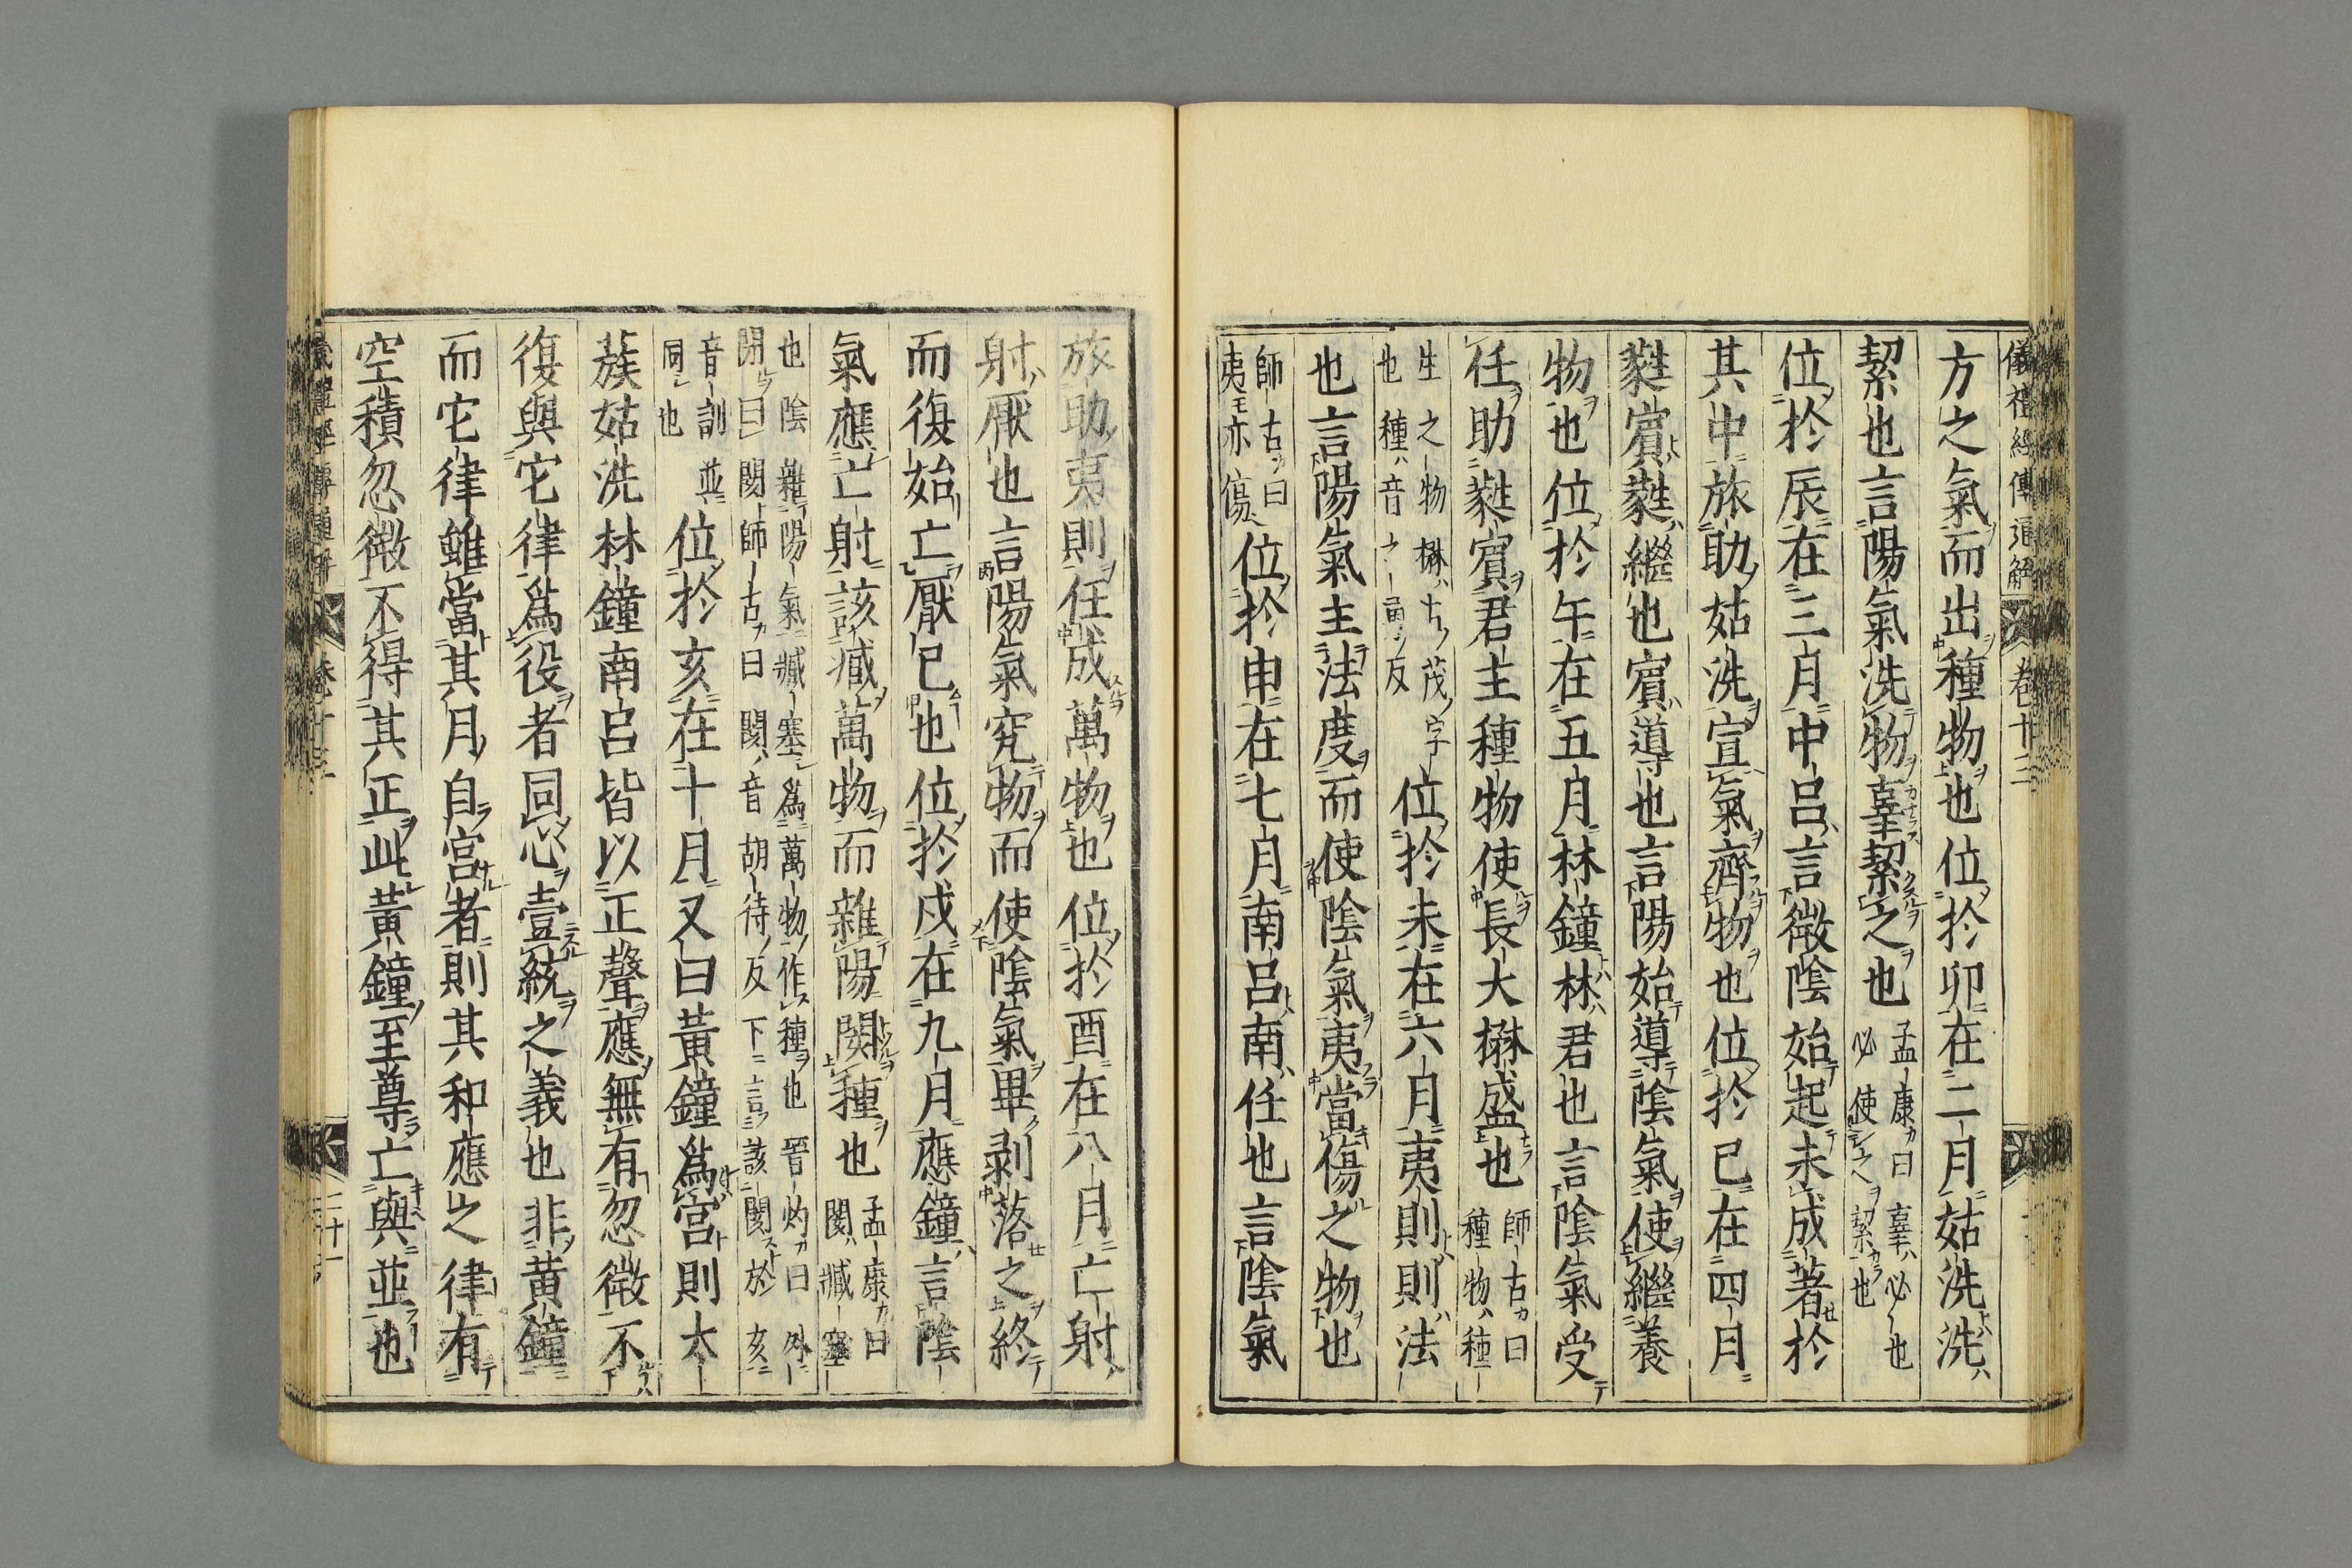 儀禮經傳通解 卷十三
方之氣而出種物也位於卯在二月姑洗洗
絜也言陽氣洗物辜絜之也孟康曰辜必也必使之絜也
位於辰在三月中呂言微陰始起未成著於
其中旅助姑洗宣氣齊物也位於巳在四月
蕤賓蕤繼也賓導也言陽始導陰氣使繼養
物也位於午在五月林鐘林君也言陰氣受
任助蕤賓君主種物使長大楙盛也師古曰種物種
生之物楙古茂字也種音之勇反位於未在六月夷則則法
也言陽氣主法度而使陰氣夷當傷之物也
師古曰夷亦傷位於申在七月南呂南任也言陰氣
旅助夷則任成萬物也位於酉在八月亡射
射厭也言陽氣究物而使陰氣畢剥落之終
而復始亡厭已也位於戍在九月應鐘言陰
氣應亡射該臧萬物而雜陽閡種也孟康曰閡臧塞
也陰雜陽氣臧塞爲萬物作種也晉灼曰外閉曰閡師古曰閡音胡待反下言該閡於亥
音訓並同也位於亥在十月又曰黃鐘爲宮則太
蔟姑洗林鐘南呂皆以正聲應無有忽微不
復與它律爲役者同心壹統之義也非黃鐘
而它律雖當其月自宮者則其和應之律有
空積忽微不得其正此黃鐘至尊亡與並也